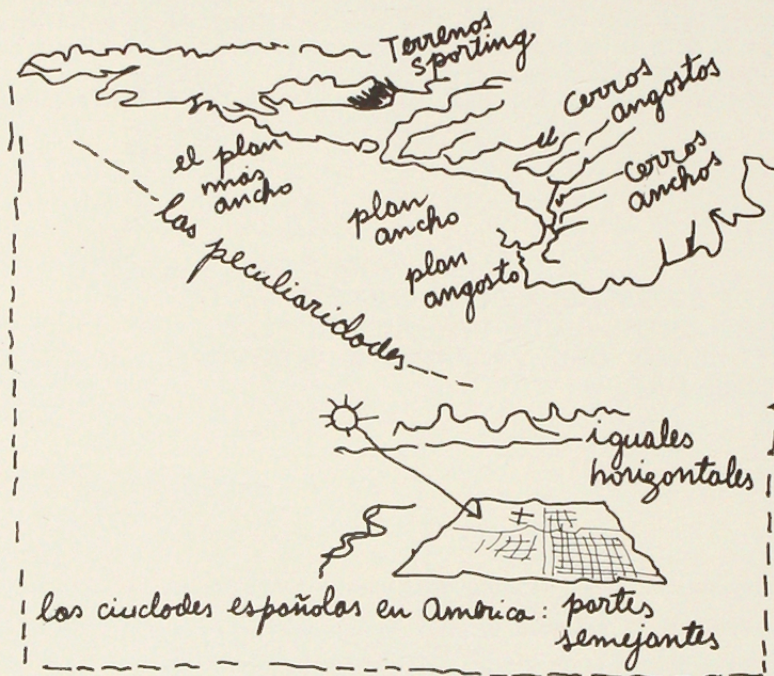 Terrenos
Sporting
cerros
angostos
cerros
anchos
el plan
más
ancho
plan
ancho
plan
angosto
las peculiaridades
iguales
horizontales
las ciudades españolas en América: partes
semejantes